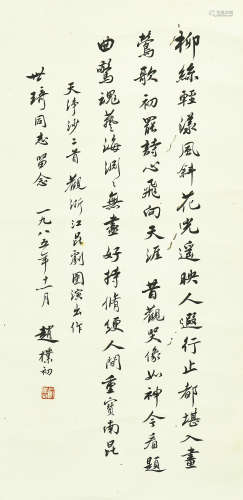 柳絲輕漾風斜花光遥映人遐行止都堪入畫
鶯歌初罷詩心飛向天涯 昔觀哭像如神今看題
曲驚魂藝海淵々無盡好持脩綆人间重寶南昆
天净沙二首 觀浙江昆劇團演出作
世同志留念 一九八五年十一月 趙樸初